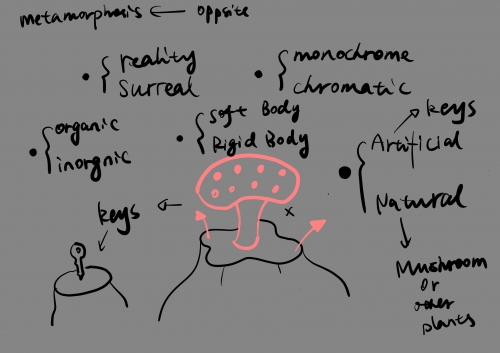 metamorphosis ← opposite
reality
surreal
monochrome
chromatic
organic
inorgnic
soft Body
Rigid Body
keys
Artificial
Natural
keys
x
Mushroom
or
other
plants